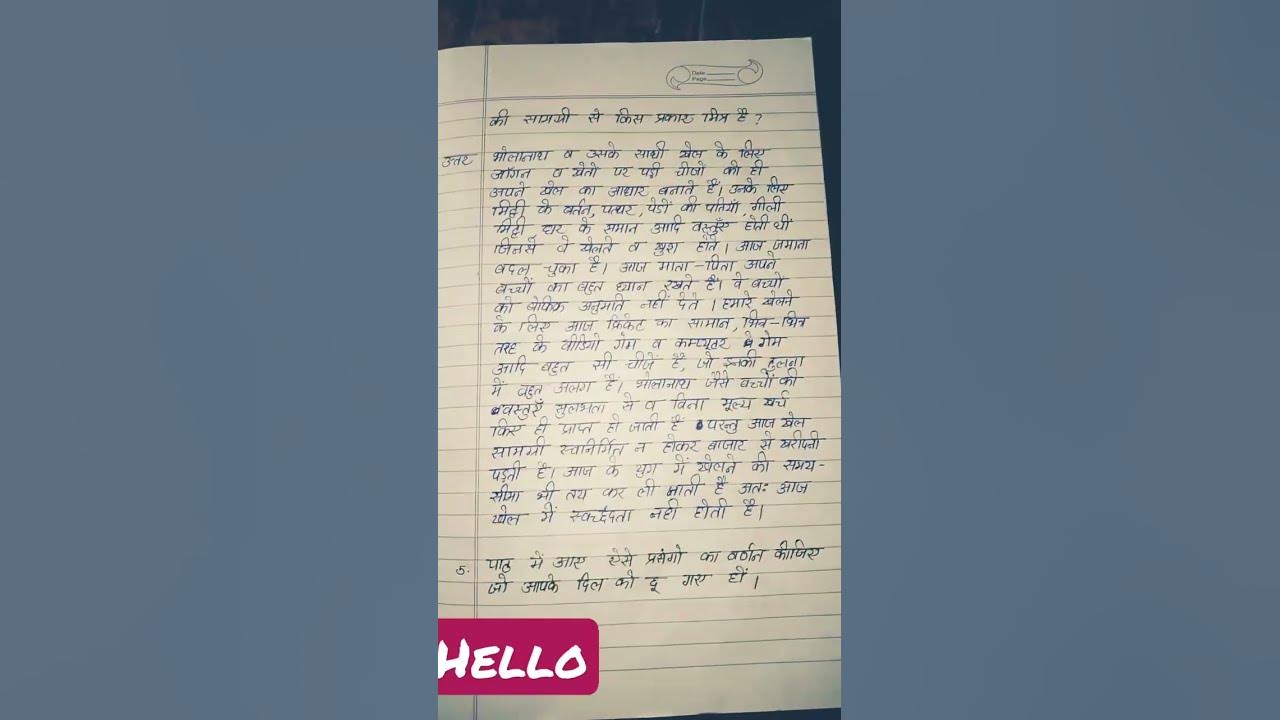 Date
Page
की सामग्री से किस प्रकार भिन्न है ?
उत्तर भोलानाथ व उसके साथी खेल के लिए
आँगन व खेतों पर पड़ी चीजों को ही
अपने खेल का आधार बनाते हैं। उनके लिए
मिट्टी के बर्तन, पत्थर, पेडों की पतियाँ, गीली
मिट्टी, घर के समान आदि वस्तुएँ होती थीं
जिनसे वे खेलते व खुश होते। आज जमाना
बदल चुका है। आज माता-पिता अपने
बच्चों का बहुत ध्यान रखते हैं। वे बच्चों
को बेफिक्र अनुमति नहीं देते । हमारे खेलने
के लिए आज क्रिकेट का सामान, भिन्न-भिन्न
तरह के वीडियो गेम व कम्प्यूटर गेम
आदि बहुत सी चीजें है, जो इनकी तुलना
में बहुत अलग हैं। भोलानाथ जैसे बच्चों की
वस्तुएँ सुलभता से व बिना मूल्य खर्च
किए ही प्राप्त हो जाती हैं परन्तु आज खेल
सामग्री स्वनिर्मित न होकर बाजार से खरीदनी
पड़ती है। आज के युग में खेलने की समय-
सीमा भी तय कर ली जाती है अतः आज
खेल में नही होती है।
5. पाठ में आए ऐसे प्रसंगो का वर्णन कीजिए
जो आपके दिल को छू गए हों ।
HELLO